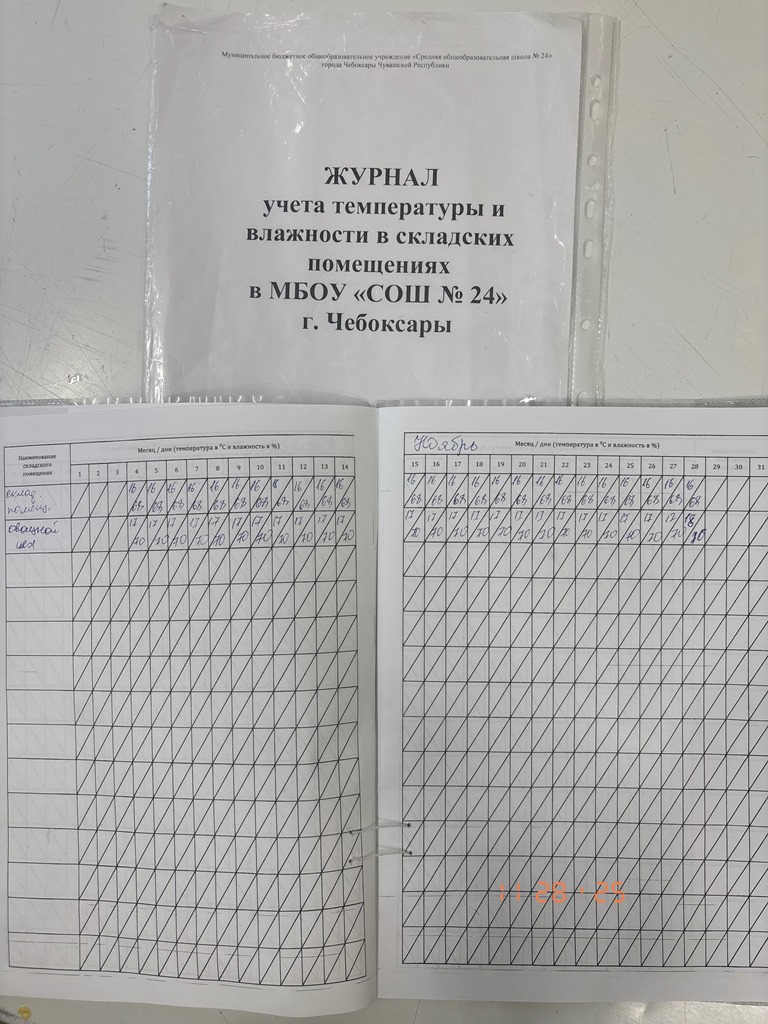 Муниципальное бюджетное общеобразовательное учреждение «Средняя общеобразовательная школа № 24»
города Чебоксары Чувашской Республики
ЖУРНАЛ
учета температуры и
влажности в складских
помещениях
в МБОУ «СОШ № 24»
г. Чебоксары
Наименование складского помещения
Месяц / дни (температура в ⁰С и влажность в %)
1 2 3 4 5 6 7 8 9 10 11 12 13 14
склад. помещ.
16 16 16 16 16 16 16 16 16 16
68 68 68 68 68 68 68 68 68 68 68
овощной цех
17 17 17 17 17 17 17 17 17 17 17
70 70 70 70 70 70 70 70 70 70 70
Ноябрь
Месяц / дни (температура в ⁰С и влажность в %)
15 16 17 18 19 20 21 22 23 24 25 26 27 28 29 30 31
16 16 16 16 16 16 16 16 16 16 16 16 16 16
68 68 68 68 68 68 68 68 68 68 68 68 68 68
17 17 17 17 17 17 17 17 17 17 17 17 17 18
70 70 70 70 70 70 70 70 70 70 70 70 70 70
11 28 '25